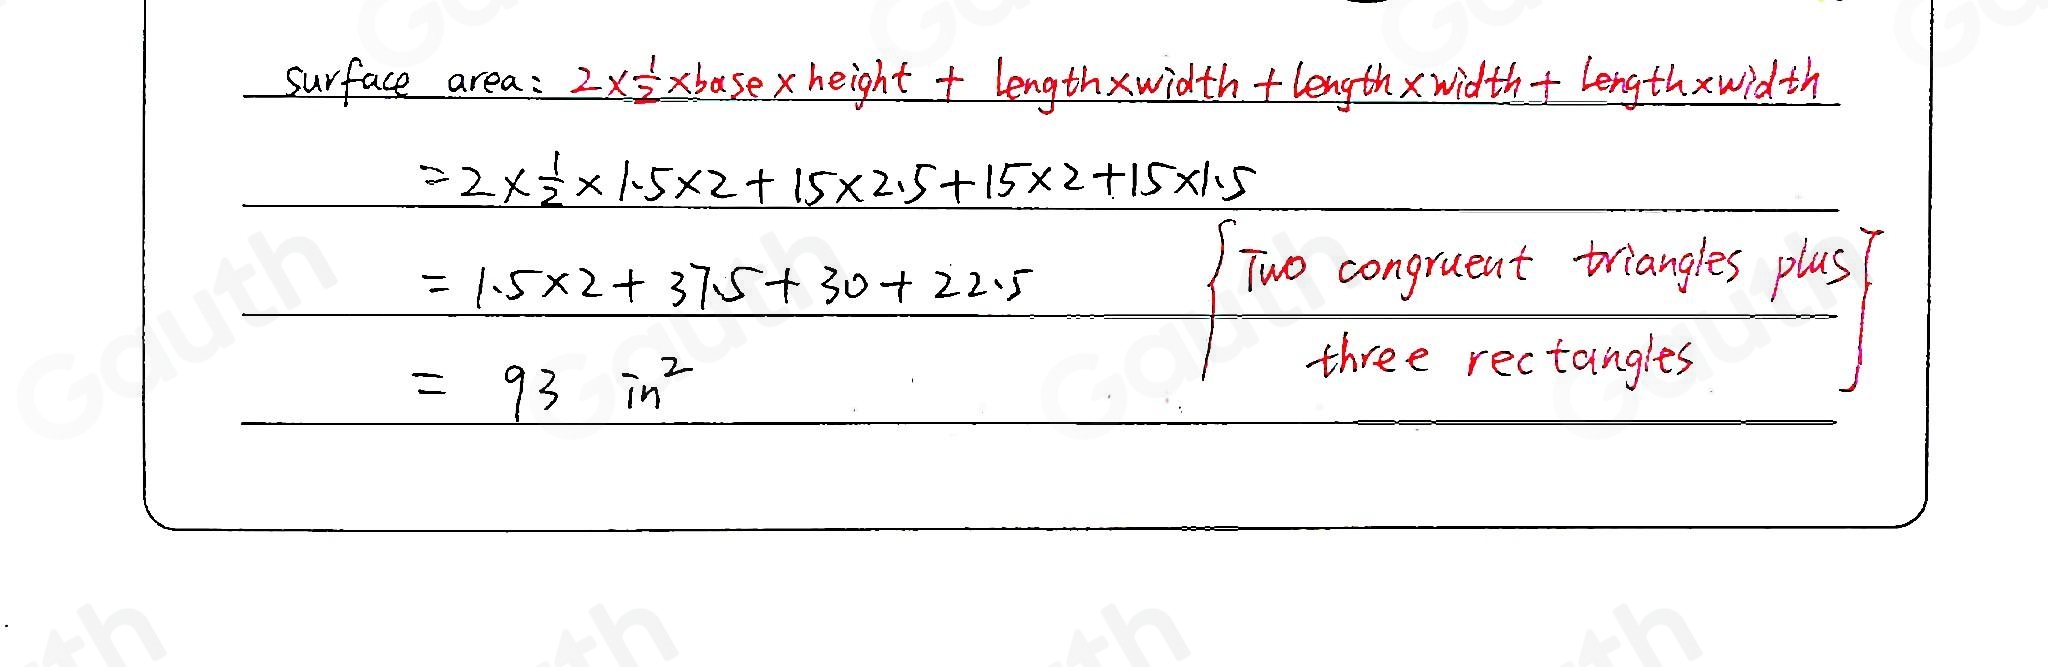 surface area: 2×½×base×height + length×width+length×width+length×width
=2×½×1.5×2+15×2.5+15×2+15×1.5
=1.5×2+37.5+30+22.5
{Two congruent triangles plus
three rectangles}
= 93 in²
Gauth
Gauth
Gauth
Gauth